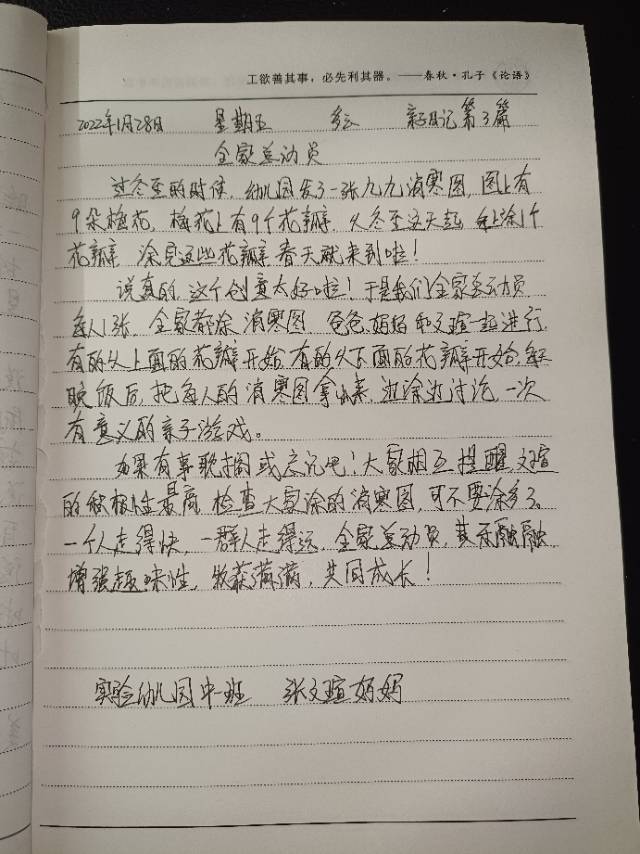 工欲善其事，必先利其器。——春秋·孔子《论语》
2022年1月28日 星期五 多云 亲子日记第3篇
全家总动员
过冬至的时候，幼儿园发了一张九九消寒图，图上有
9朵梅花，梅花上有9个花瓣，从冬至这天起，每天涂1个
花瓣，涂完这些花瓣春天就来到啦！
说真的，这个创意太好啦！于是我们全家总动员，
每人1张，全家都涂消寒图，爸爸、妈妈和文瑄一起进行，
有的从上面的花瓣开始，有的从下面的花瓣开始，每天
晚饭后，把每人的消寒图拿出来，边涂边讨论，一次
有意义的亲子游戏。
如果有事耽搁或忘记吧！大家相互提醒，文瑄
的积极性最高，检查大家涂的消寒图，可不要涂多了。
一个人走得快，一群人走得远，全家总动员，其乐融融，
增强趣味性，收获满满，共同成长！
实验幼儿园中一班 张文瑄妈妈